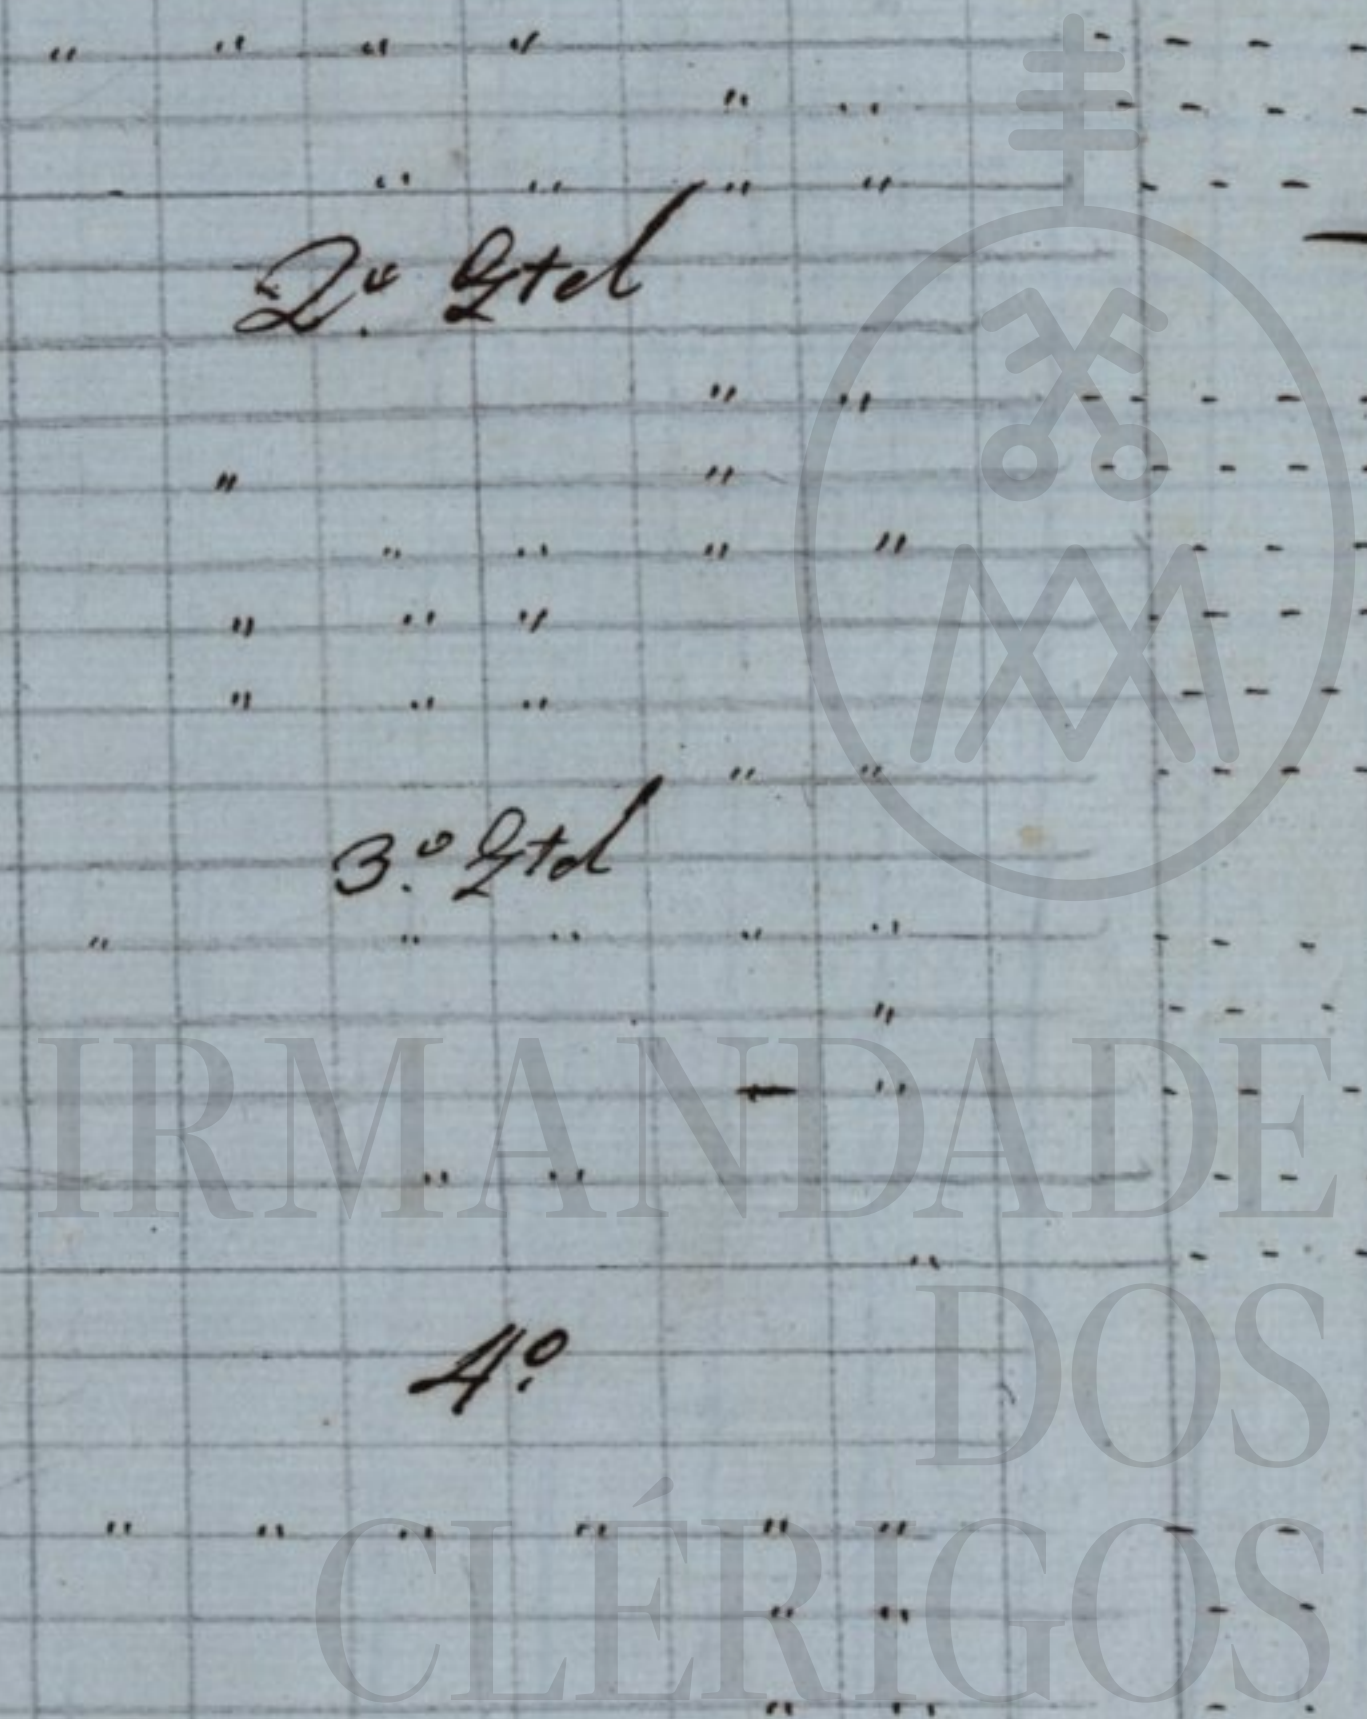 " " " " - - - -
" " - - - -
- " " " " - - - —
2.º Qtel
" " - - - - -
" " - - - - -
" " " " - - -
" " " - - - -
" " " - - -
" " - - - -
3.º Qtel
" " " " " - - -
" - - -
— " - - -
" " - -
" - - -
4.º
" " " " " " - -
" " - -
" " - -
IRMANDADE
DOS
CLÉRIGOS